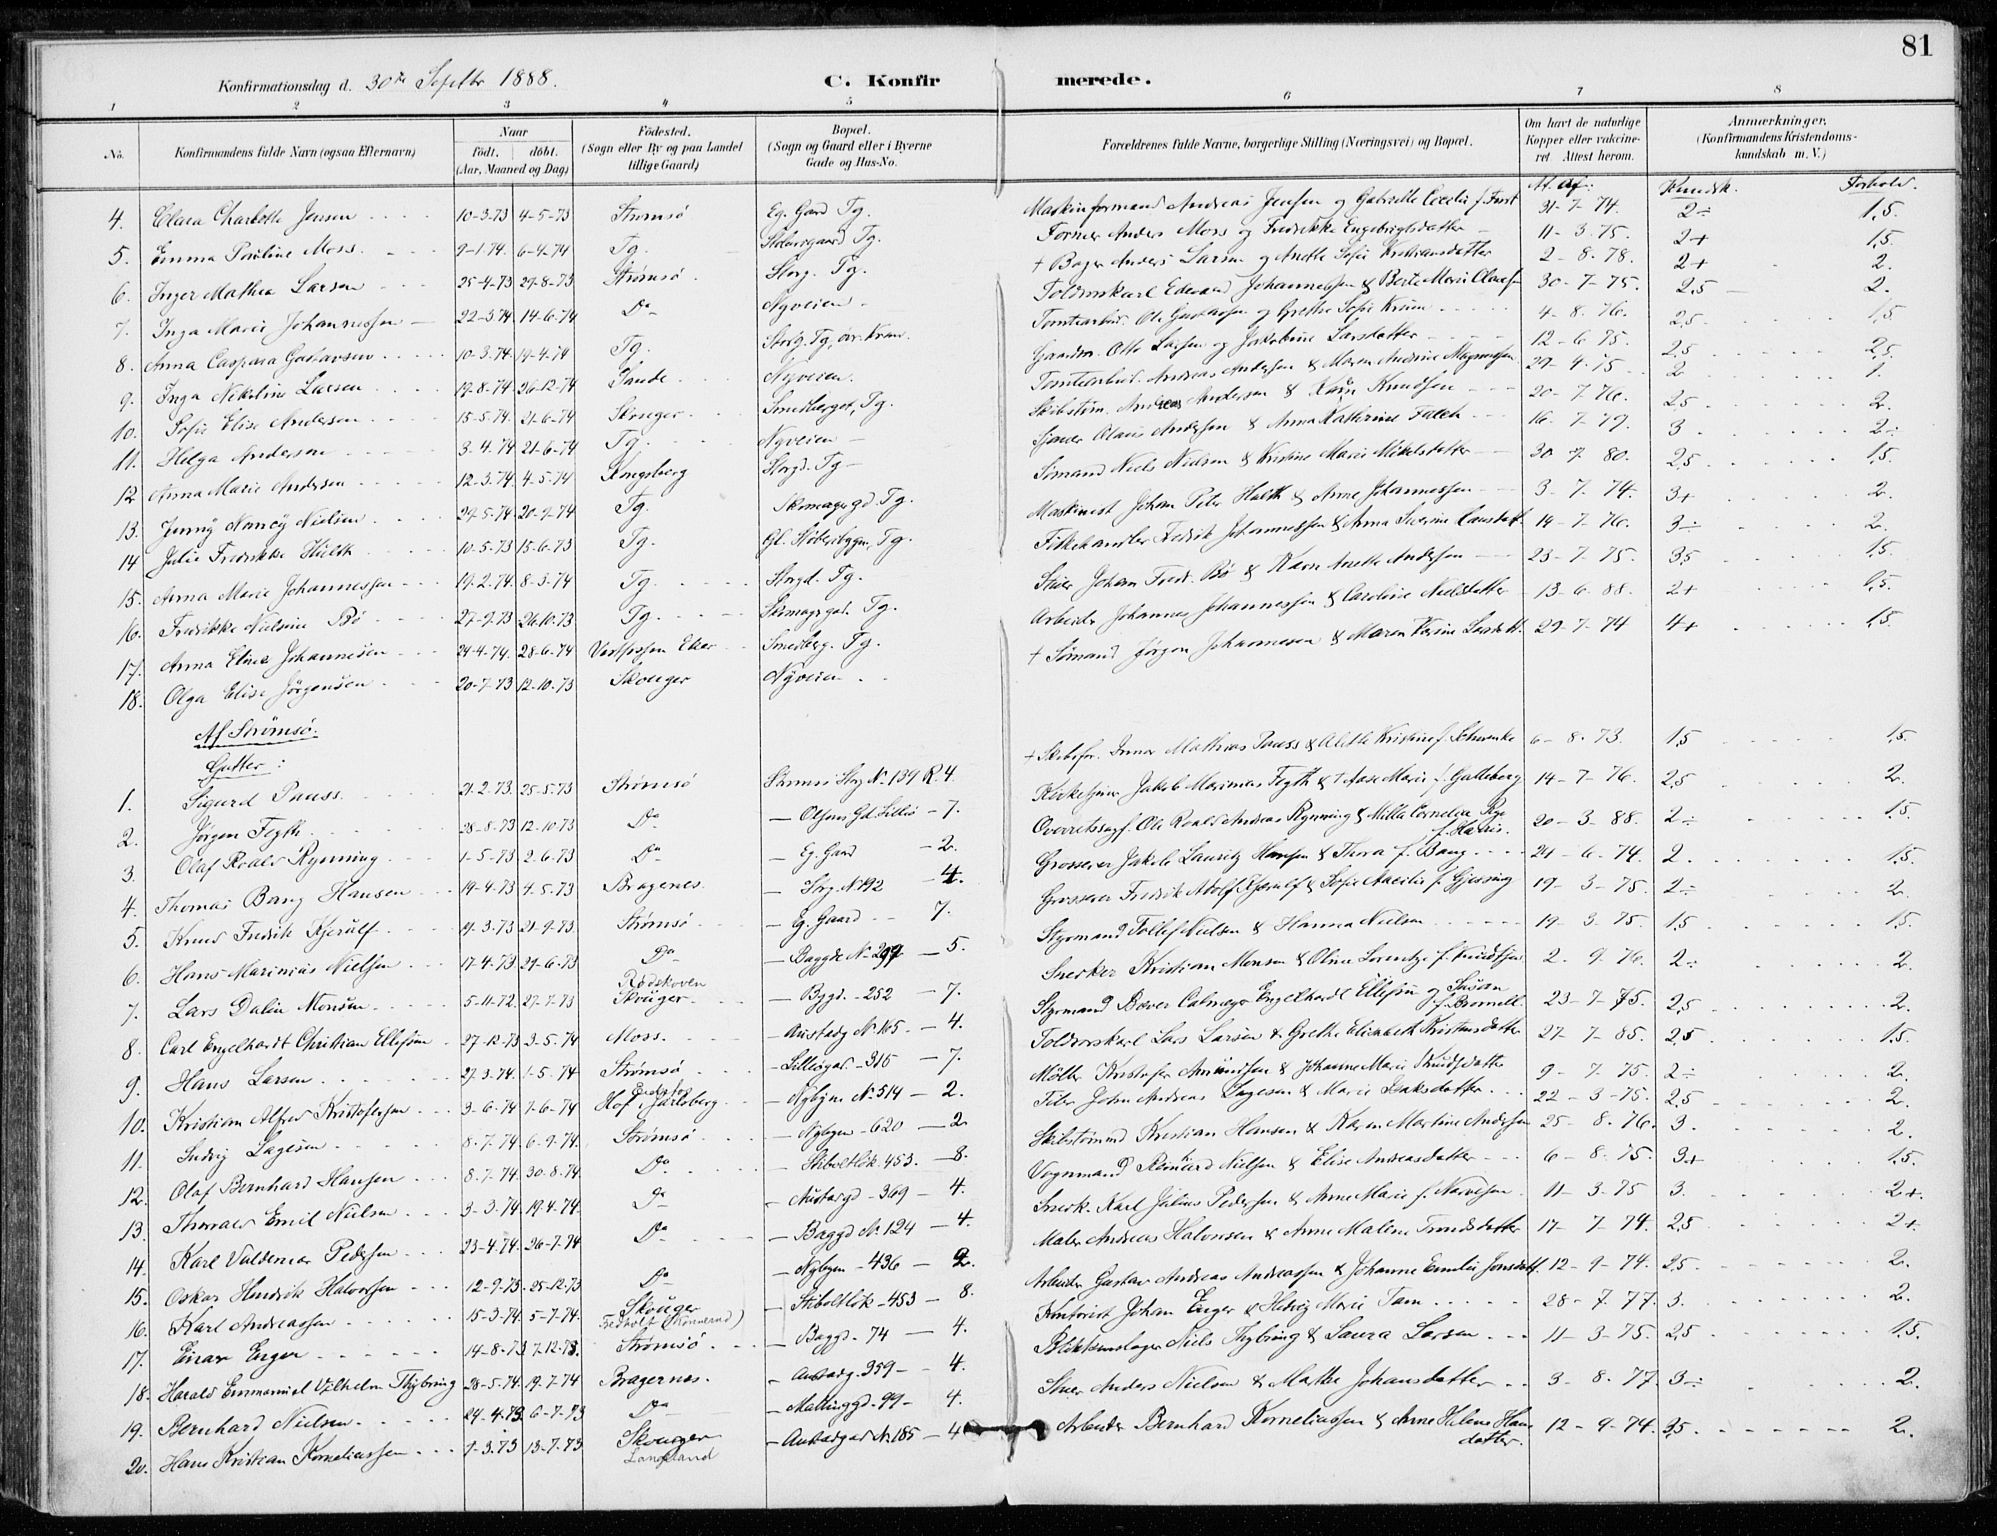 81
Konfirmationsdag d. 30te Septbr 1888.
C. Konfirmerede.
1 2 3 4 5 6 7 8
No.
Konfirmandens fulde Navn (ogsaa Efternavn)
Naar
født. døbt.
(Aar, Maaned og Dag)
Fødested.
(Sogn eller By og paa Landet
tillige Gaard)
Bopæl.
(Sogn og Gaard eller i Byerne
Gade og Hus-No.
Forældrenes fulde Navne, borgerlige Stilling (Næringsvei) og Bopæl.
Om havt de naturlige
Kopper eller vakcine-
ret. Attest herom.
Anmærkninger.
(Konfirmandens Kristendoms-
kundskab m. V.)
At. af: Kundsk. Forhold.
4. Clara Charlotte Jensen 10-3-73 4-5-73 Strømsø Eg. Gard Tg. Maskinformand Andreas Jensen og Gabrielle Cecilie f. 31-7-74. 2÷ 1,5.
5. Emma Pauline Moss 9-1-74. 6-4-74 Tg. Tg. Anders Moss og Fredrikke Engebrigtsdatter 11-3-75. 2+ 1,5.
6. Inger Mathea Larsen 25-4-73 29-8-73 Strømsø Storg. Tg. + Bager Anders Larsen og Anette Sofie Kristiansdatter 2-8-78. 2+ 2.
7. Inga Marie Johannessen 22-3-74 14-6-74 Do Nyveien Toldorskarl Edvard Johannessen & Berte Marie Olavsen 30-7-75. 2,5 2.
8. Anna Caspara Gustavsen 10-3-74 19-4-74 Tg. Storg. Tg. Tomtearbeid. Ole Gustavsen og Grethe Sofie 4-8-76. 2,5 1,5.
9. Inga Nikoline Larsen 19-8-74 26-12-74 Sande Nyveien. Gaardm. Otto Larsen og Jakobine Larsdatter 12-6-75. 2,5 2,5.
10. Sofie Elise Andersen 15-5-74. 21-6-74 Skouger Smedberget, Tg. Tomtearbeid. Andreas Andersen & Maren Andrine Magnussen 29-4-75 2 1.
11. Helga Andersen 3-4-74 21-6-74 Tg. Nyveien Skibstøm. Andreas Andersen & Karn Knudsen 20-7-76. 2,5 2.
12 Anna Marie Andersen 12-3-74 4-5-74 Kongsberg Storgd. Tg Olaus Andersen & Anna Katherine Falch 16-7-79. 3 2÷
13. Jenny Nancy Nielsen 29-5-74 20-9-74 Tg. Skomagergd. Tg. Sømand Niels Nielsen & Kristine Marie Mikelsdatter 30-7-80. 2,5 1,5.
14 Julie Fredrikke Hülth 10-5-73 15-6-73 Tg. Tg. Maskinist Johan Peter Hülth & Anne Johannessen 3-7-74. 3+ 2.
15. Anna Marie Johannessen 19-2-74 8-3-74 Tg. Storgd. Tg. Fiskehandler Fedrik Johannessen & Anna Severine 14-7-76. 3÷ 2.
16. Fredrikke Nielsine Bø 27-9-73 26-10-73 Tg. Skomagrgad. Tg. Stuer Johan Fredr. Bø & Karn Anette Andersen 23-7-75. 3,5 1,5.
17. Anna Eline Johannesen 24-4-74. 28-6-74 Vestfossen Eker Smedberg. Tg. Arbeider Johannes Johannessen & Caroline Nielsdatter 13-6-88. 2+ 1,5.
18. Olga Elise Jørgensen 20-7-73 12-10-73 Skouger Nyveien + Sømand Jørgen Johannesen & Maren Karine Larsdatt. 29-7-74 4+ 1,5.
Af Strømsø.
Gutter:
1. Sigurd Pauss 21-2-73 25-5-73 Strømsø Strømsø Storg. No 139 R. 4. + Skibsfør. Ismar Mathias Pauss & Alethe Kristine f. Schwenke 6-8-73. 1,5 1,5.
2. Jørgen Fegth 28-8-73 12-10-73 Do – Olsens Gd. Lillio – 7. Kirketjener Jakob Marinius Fegth & Aase Marie f. Galteberg 14-7-76. 2,5 2.
3. Olaf Roald Rynning 1-5-73 2-6-73 Do – Eg. Gard – 2. Overretssagf. Ole Roald Andreas Rynning & Milla Cornelia Rye f. Harris. 20-3-88. 2÷ 1,5.
4. Thomas Bang Hansen 14-4-73 4-5-73 Bragenes. – Storg. No 192 – 4. Grosserer Jakob Lauritz Hansen & Thora f. Bang 21-6-74. 2. 1,5.
5. Knud Fredrik Kjerulf 19-3-73 21-9-73 Strømsø – Eg. Gaard – 7. Grosserer Fredrik Adolf Kjerulf & Sofie Amalie f. Gjessing 19-3-75. 2÷ 2.
6. Hans Marinius Nielsen 17-4-73 21-6-73 Do – Baggde No 297 – 5. Styrmand Tollef Nielsen & Hanna Nielsen 19-3-75. 1,5 1,5.
7. Lars Dalin Monsen 5-11-72 27-7-73 Rødskoven Skouger – Bygd. 252 – 7. Snekker Kristian Monsen & Oline Lorentze f. Knudsen 2-9-76. 2÷ 2.
8. Carl Engelhardt Christian Ellefsen 27-12-73 3-5-74 Moss. – Austadg No 165. – 4. Styrmand Bever Calmeyer Engelhardt Ellefsen og Susan f. Bromell. 23-7-75. 2,5 2.
9. Hans Larsen 27-3-74. 1-5-74 Strømsø – Lilleøgad. 315 – 7. Toldorskarl Lars Larsen & Grethe Elisabeth Kristensdatter 27-7-85. 2,5 1,5.
10. Kristian Alfred Kristofersen 3-6-74 7-6-74 Hof i Jarlsberg – Nybyen No 514 – 2. Møller Kristofer Amundsen & Johanne Marie Knudsdatter 9-7-75. 2÷ 2.
11. Ludvig Lagesen 8-7-74 6-9-74. Strømsø – Nybyen – 620 – 2 John Andreas Lagesen & Marie Isaksdatter 22-3-75. 2,5 2.
12. Olaf Bernhard Hansen 8-7-74 30-8-74 Do – Stiboltløk. 453. – 8. Skibstømmd Kristian Hansen & Karen Martine Andersen 25-8-76. 3. 2.
13. Thorvald Emil Nielsen 3-3-74. 19-4-74. Do – Austadgd – 369 – 4. Vognmand Reinhard Nielsen & Elise Andreasdatter 6-8-75. 3+ 1,5.
14. Karl Valdemar Pedersen 23-4-74. 26-7-74 Do – Baggd No 124 – 4. Snedk. Karl Julius Pedersen & Anne Marie f. Narvesen 11-3-75 3. 2+.
15. Oskar Hendrik Halvorsen 12-9-73. 25-12-73 Do – Nybyen – 436 – 2. Maler Andreas Halvorsen & Anne Malene Trondsdatter 17-7-74. 2,5 2+.
16. Karl Andreassen 15-3-74. 5-7-74. Skouger (Konnerud) – Stiboltløk – 453 – 8. Arbeider Gustav Andreas Andreassen & Johanne Emilie Jonsdatt. 12-9-74. 2,5. 2.
17. Einar Enger 14-8-73 7-12-73. Strømsø – Baggd. 74 – 4. Kontorist Johan Enger & Hedvig Marie Tam 28-7-77. 3. 2.
18. Harald Emmanuel Vilhelm Thybring 28-5-74. 19-7-74 Bragernes. – Austadg. 359 – 4. Blikkenslager Niels Thybring & Laura Larsen 11-3-75. 2,5 1,5.
19. Bernhard Nielsen 24-4-73. 6-7-73 Do – Mattinggd – 99 – 4. Stuer Anders Nielsen & Marthe Johansdatter 3-8-77. 3÷ 2.
20. Hans Kristian Korneliassen 9-3-73 13-7-73 Skouger Langeland – Austadgad No 185 – 4 Arbeider Bernhard Korneliassen & Anne Helene Hansdatter. 12-9-74. 3,5. 2.